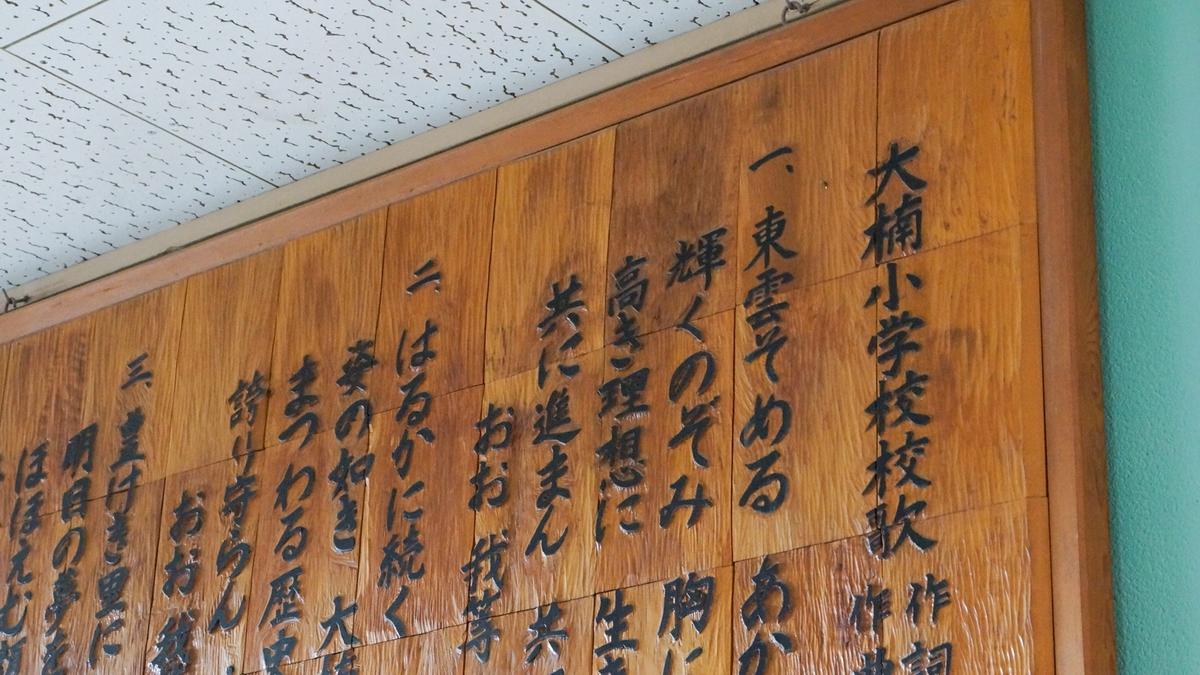 大楠小学校校歌 作詞
作曲
一、東雲そめる あか
輝くのぞみ 胸に
高き理想に 生き
共に進まん 共に
おお 我等
二、はるかに続く
姿の如き 大
まつわる歴史
誇り守らん
おお 我等
三、豊けき里に
明日の夢を
ほほえむ